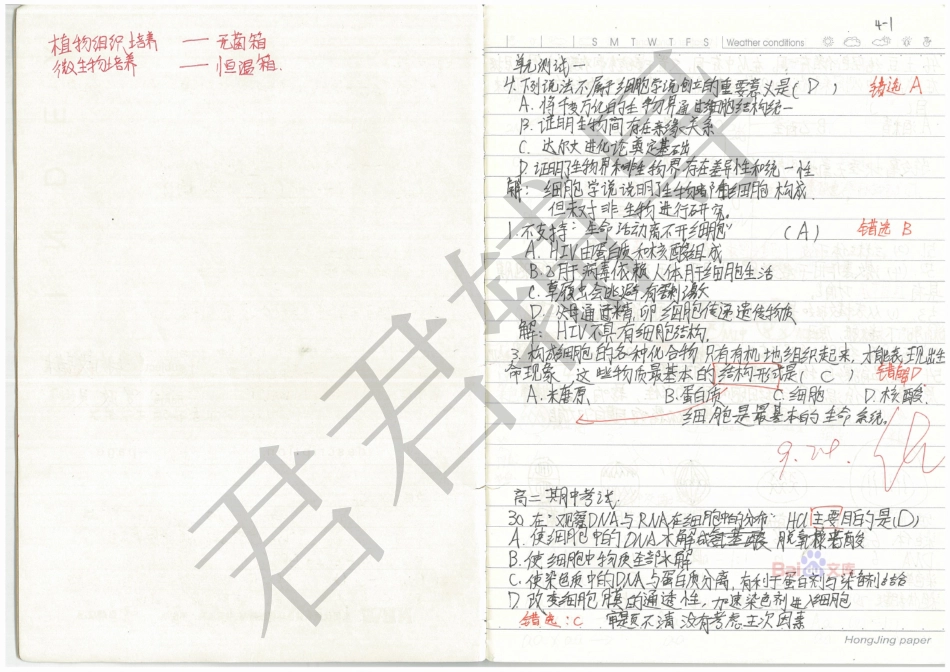 植物组织培养 — 无菌箱
微生物培养 — 恒温箱.
4-1
S M T W T F S Weather conditions
单元测试一
4.下列说法不属于细胞学说创立的重要意义是( D ) 错选 A
A. 将千变万化的生物界通过细胞结构统一
B. 证明生物间存在亲缘关系
C. 达尔文进化论奠定基础
D. 证明了生物界和非生物界存在差异性和统一性
解: 细胞学说说明了生物都由细胞构成
但未对非生物进行研究。
1.不支持"生命活动离不开细胞" (A) 错选 B
A. HIV由蛋白质和核酸组成
B. 乙肝病毒依赖人体肝细胞生活
C. 草履虫会逃避有害刺激
D. 父母通过精.卵细胞传递遗传物质
解: HIV不具有细胞结构.
3. 构成细胞的各种化合物只有有机地组织起来.才能表现出生
命现象 这些物质最基本的结构形式是( C ) 错选D
A. B.蛋白质 C.细胞 D.核酸.
细胞是最基本的生命系统。
9.28.
高二 期中考试
30 在"观察DNA与RNA在细胞中的分布" HCl主要目的是(D)
A. 使细胞中的DNA水解成 脱氧核苷酸
B. 使细胞中物质全部水解
C. 使染色质中的DNA与蛋白质分离,有利于蛋白剂与染色剂结合
D. 改变细胞膜的通透性,加速染色剂进入细胞
错选:C 审题不清 没有考虑主次因素
Bai 文库
HongJing paper
君君辅导